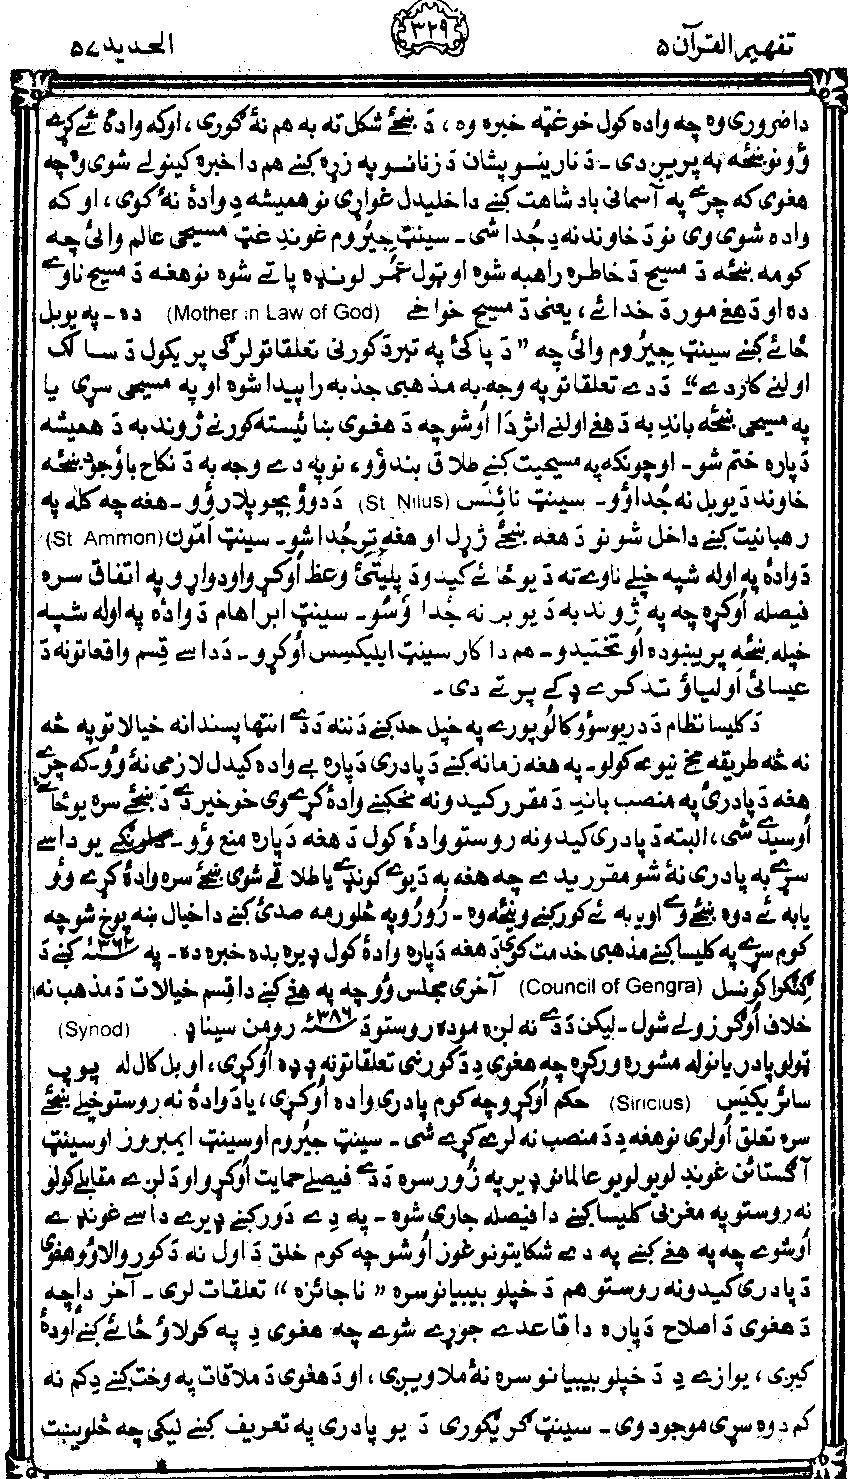 تفهيم القرآن ۵
۳۲۹
الحديد ۵۷
دا ضروري وه چه واده کول خو غټه خبره وه، د ښځے شکل ته به هم نۀ ګوري، او که وادۀ ئے کړے
وؤ نو ښځه به پريږدي ـ د نارينو پشان د زنانو په زړه کښے هم دا خبره کينولے شوي وه چه
هغوي که چرے په آسماني بادشاهت کښے داخليدل غواړي نو هميشه دِ وادۀ نۀ کوي، او که
واده شوي وي نو د خاوند نه دِ جُدا شي ـ سينټ جيروم غوندِ غټ مسيحي عالم وائي چه
کومه ښځه د مسيح د خاطره راهبه شوه او ټول عمر لونډه پاتے شوه نو هغه د مسيح ناوے
ده او د هغے مور د خدائے، يعني د مسيح خواخے (Mother in Law of God) ده ـ په يو بل
ځائے کښے سينټ جيروم وائي چه " د پاکۍ په تبر د کورني تعلقاتو لرګي پريکول د سالک
اولنے کار دے" ـ د دے تعلقاتو په وجه به مذهبي جذبه را پيدا شوه او په مسيحي سړي يا
په مسيحي ښځه باندِ به د هغے اولنے اثر دا اوشو چه د هغوي ښائيسته کورنے ژوند به د هميشه
دپاره ختم شو ـ او چونکه په مسيحيت کښے طلاق بند وؤ، نو په دے وجه به د نکاح باوجود ښځه
خاوند د يو بل نه جُدا وؤ ـ سينټ نائلس (St Nilus) د دوؤ بچو پلار وؤ ـ هغه چه کله په
رهبانيت کښے داخل شو نو د هغه ښځے ژړل او هغه ترِ جُدا شو ـ سينټ امّون (St Ammon)
د وادۀ په اوله شپه خپلے ناوے ته د يو ځائے کيدو د پليتۍ وعظ اوکړو او دواړو په اتفاق سره
فيصله اوکړه چه په ژوند به د يو بر نه جُدا وسو ـ سينټ ابراهام د وادۀ په اوله شپه
خپله ښځه پريښوده او تختيدو ـ هم دا کار سينټ ايليکسس اوکړو ـ د دا سے قِسم واقعاتو نه د
عيسائي اولياؤ تذکرے ډکے پرتے دي ـ
د کليسا نظام د دريو سوؤ کالو پورے په خپل حد کښے د ننه د دے انتها پسندانه خيالاتو په څه
نه څه طريقه مخ نيوے کولو ـ په هغه زمانه کښے د پادري دپاره بے واده کيدل لازمي نۀ وؤ ـ که چرے
هغه د پادرۍ په منصب باندِ د مقرر کيدو نه مخکښے وادۀ کړے وي خو خير دے د ښځے سره يو ځائے
اوسيدے شي، البته د پادري کيدو نه روستو وادۀ کول د هغه دپاره منع وؤ ـ يو دا سے
سړے به پادري نۀ شو مقرريدے چه هغه به د يوے کونډے يا طلاقے شوي ښځے سره وادۀ کړے وؤ
يا به ئے دوه ښځے وے او يا به ئے کور کښے وينځه وه ـ رُو رُو په څلورمه صدۍ کښے دا خيال ښه پوخ شو چه
کوم سړے په کليسا کښے مذهبي خدمت کوي د هغه دپاره وادۀ کول ډيره بده خبره ده ـ په ۳۶۲ء کښے د
ګنګرا کونسل (Council of Gengra) آخري مجلس وؤ چه په هغے کښے دا قِسم خيالات د مذهب نه
خلاف اوګرزولے شول ـ ليکن د دے نه لږه موده روستو د ۳۸۶ء رومن سيناډ (Synod)
ټولو پادريانو له مشوره ورکړه چه هغوي دِ د کورني تعلقاتو نه ډډه اوکړي، او بل کال له پوپ
سائريکيس (Siricius) حکم اوکړو چه کوم پادري واده اوکړي، يا د وادۀ نه روستو خپلے ښځے
سره تعلق اولري نو هغه دِ د منصب نه لرے کړے شي ـ سينټ جيروم او سينټ ايمبروز او سينټ
آګسټائن غوندِ لويو لويو عالمانو ډير په زور سره د دے فيصلے حمايت اوکړو او د لږے مقابلے کولو
نه روستو په مغربي کليسا کښے دا فيصله جاري شوه ـ په دے دور کښے ډيرے دا سے غونډے
اوشوے چه په هغے کښے په دے شکايتونو غور اوشو چه کوم خلق د اول نه د کور والا وؤ هغوي
د پادري کيدو نه روستو هم د خپلو بيبيانو سره " ناجائزه " تعلقات لري ـ آخر دا چه
د هغوي د اصلاح دپاره دا قاعدے جوړے شوے چه هغوي دِ په کولاؤ ځائے کښے اودۀ
کيږي، يوازے دِ د خپلو بيبيانو سره نۀ ملاويږي، او د هغوي د ملاقات په وخت کښے دِ کم نه
کم دوه سړي موجود وي ـ سينټ ګريګوري د يو پادري په تعريف کښے ليکي چه څلويښت